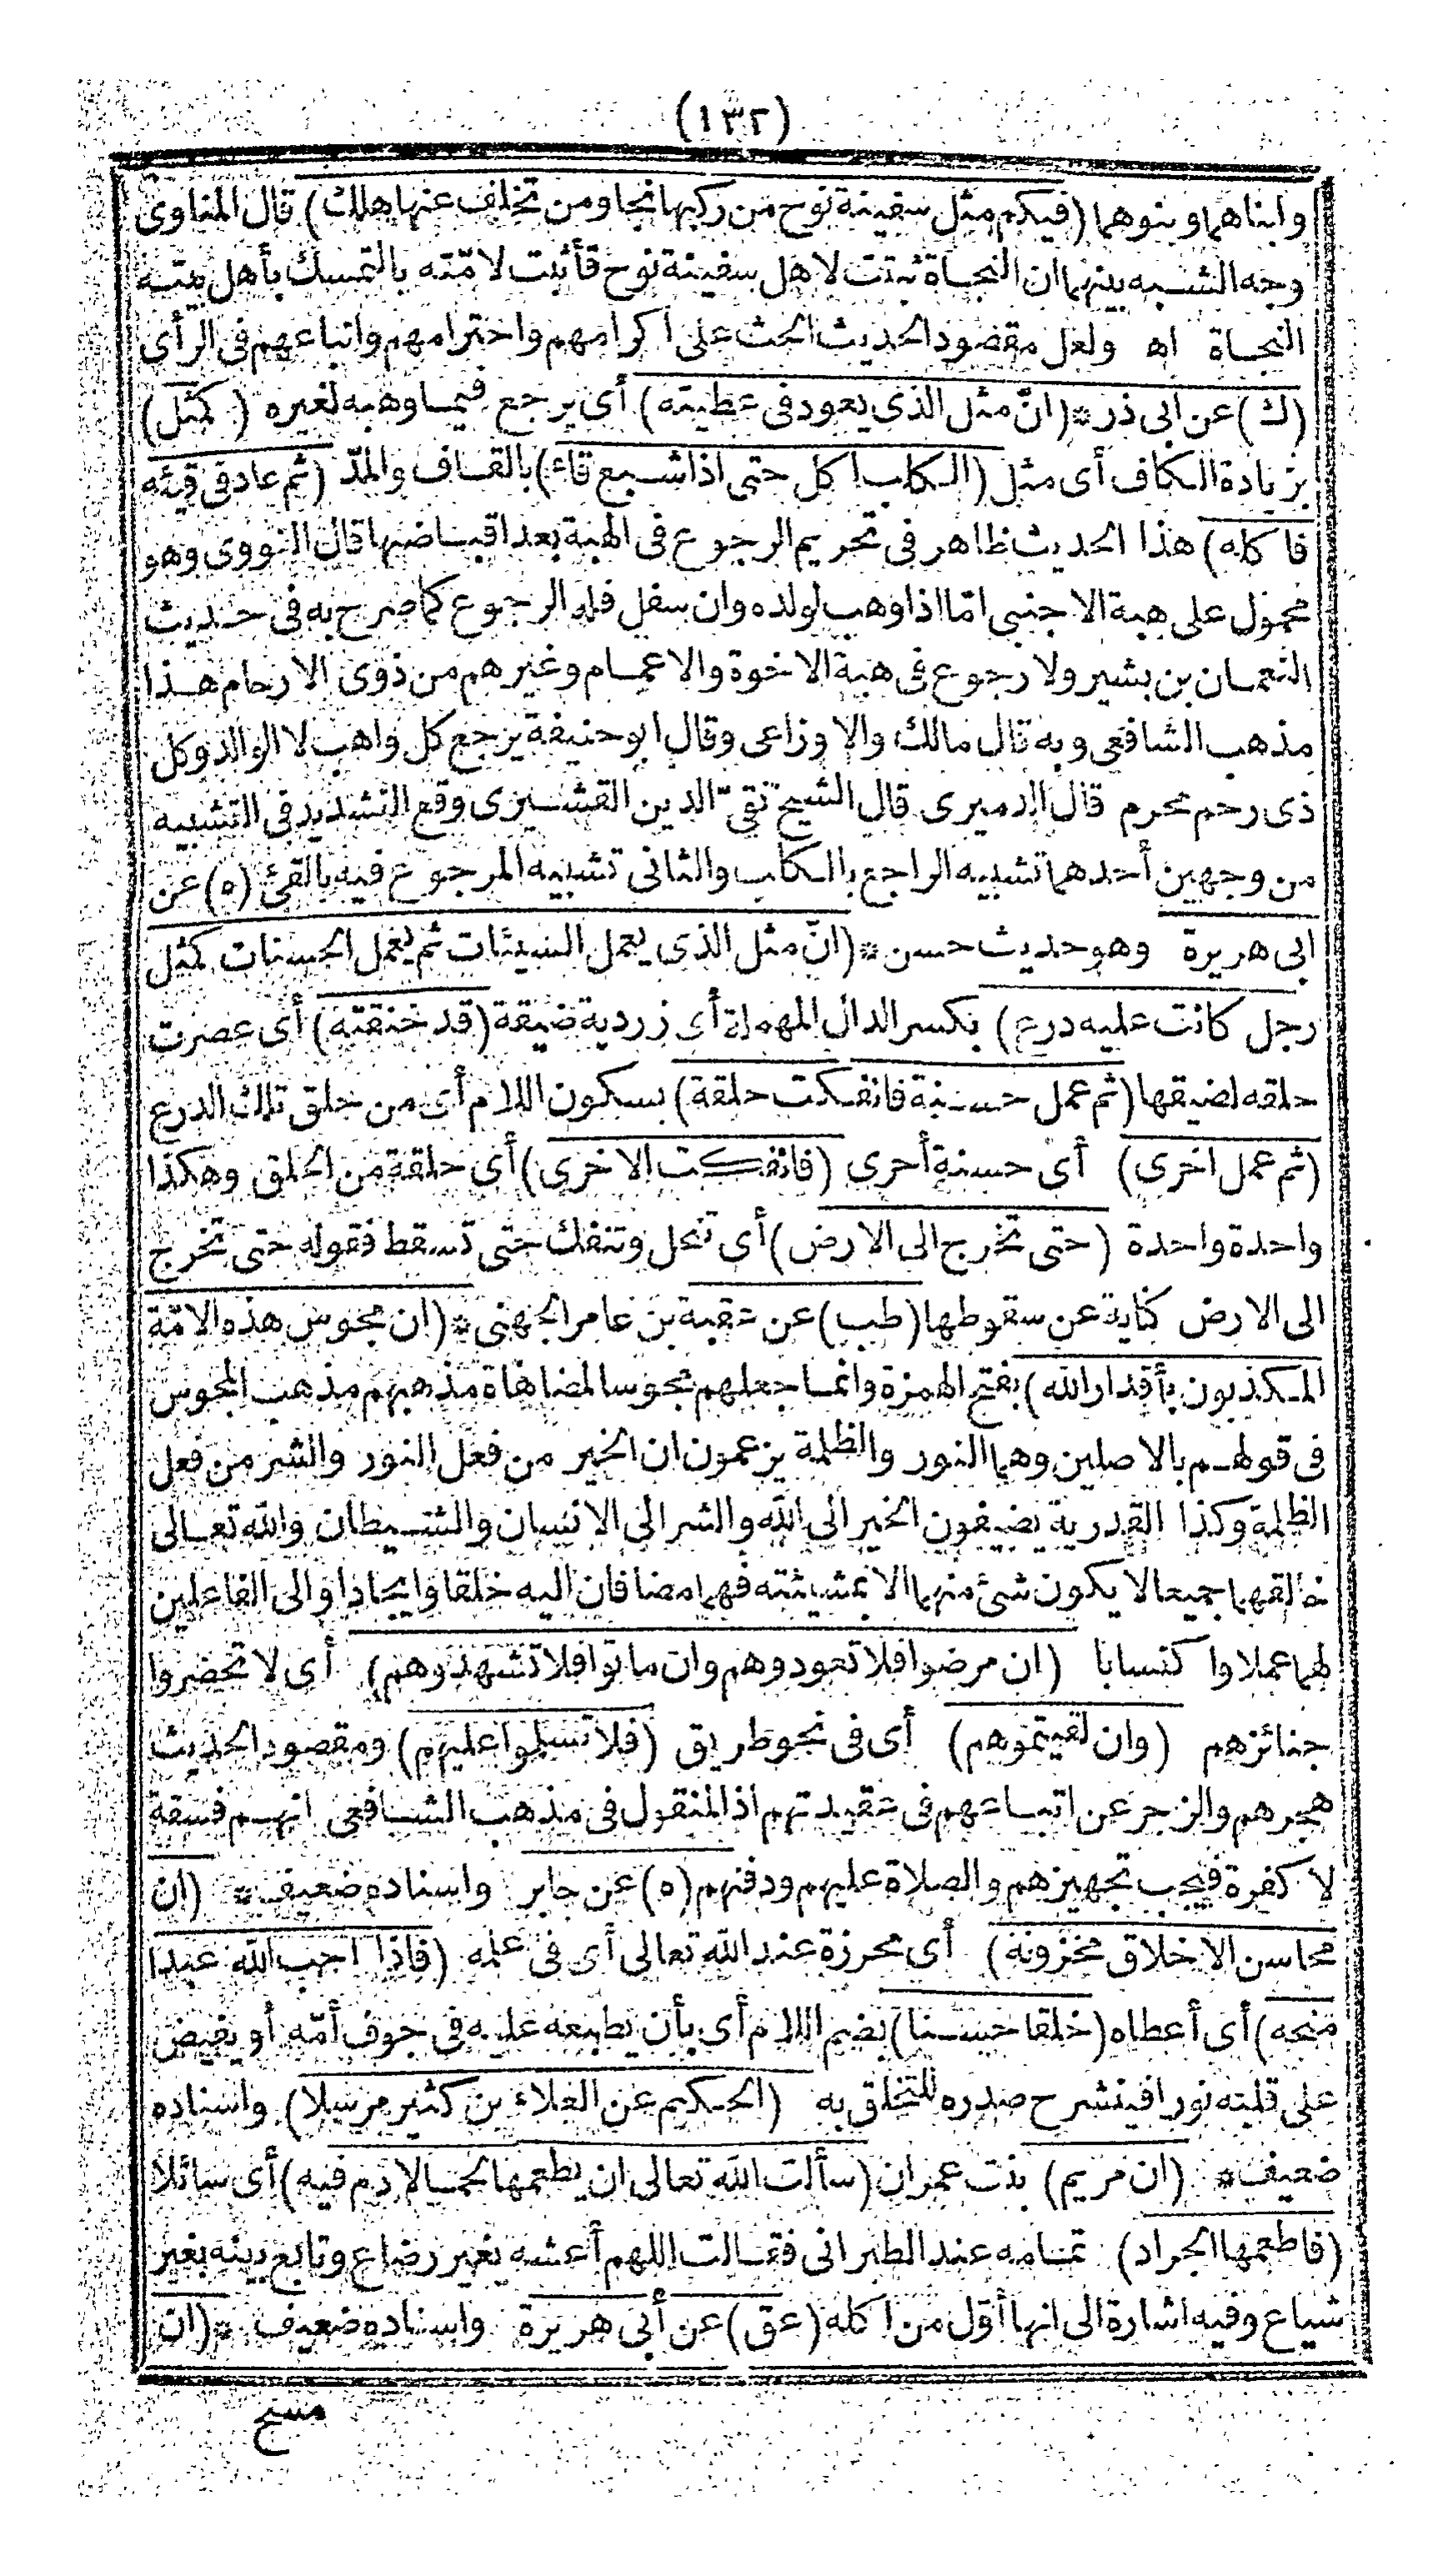 (١٣٢)
وابناهما وبنوهما (فيكم مثل سفينة نوح من ركبها نجا ومن تخلف عنها هلك) قال المناوى
وجه الشبه بينهما ان النجاة ثبتت لاهل سفينة نوح فأثبت لامّته بالتمسك بأهل بيته
النجاة اه ولعل مقصود الحديث الحث على اكرامهم واحترامهم واتباعهم فى الرأى
(ك) عن ابى ذر * (انّ مثل الذى يعود فى عطيته) أى يرجع فيما وهبه لغيره (كمثل)
بزيادة الكاف أى مثل (الكلب اكل حتى اذا شبع قاء) بالقاف والمدّ (ثم عاد فى قيئه
فاكله) هذا الحديث ظاهر فى تحريم الرجوع فى الهبة بعد اقباضها قال النووى وهو
محمول على هبة الاجنبى امّا اذا وهب لولده وان سفل فله الرجوع كما صرح به فى حديث
النعمان بن بشير ولا رجوع فى هبة الاخوة والاعمام وغيرهم من ذوى الارحام هذا
مذهب الشافعى وبه قال مالك والاوزاعى وقال ابو حنيفة يرجع كل واهب لا الوالد وكل
ذى رحم محرم قال الدميرى قال الشيخ تقىّ الدين القشيرى وقع التشديد فى التشبيه
من وجهين أحدهما تشبيه الراجع بالكلب والثانى تشبيه المرجوع فيه بالقئ (ه) عن
ابى هريرة وهو حديث حسن * (انّ مثل الذى يعمل السيئات ثم يعمل الحسنات كمثل
رجل كانت عليه درع) بكسر الدال المهملة أى زردية ضيقة (قد خنقته) أى عصرت
حلقه لضيقها (ثم عمل حسنة فانفكت حلقة) بسكون اللام أى من حلق تلك الدرع
(ثم عمل اخرى) أى حسنة أخرى (فانفكت الاخرى) أى حلقة من الحلق وهكذا
واحدة واحدة (حتى تخرج الى الارض) أى تنحل وتنفك حتى تسقط فقوله حتى تخرج
الى الارض كناية عن سقوطها (طب) عن عقبة بن عامر الجهنى * (ان مجوس هذه الامّة
المكذبون بأقدار الله) بفتح الهمزة وانما جعلهم مجوسا لمضاهاة مذهبهم مذهب المجوس
فى قولهم بالاصلين وهما النور والظلمة يزعمون ان الخير من فعل النور والشر من فعل
الظلمة وكذا القدرية يضيفون الخير الى الله والشر الى الانسان والشيطان والله تعالى
خالقهما جميعا لا يكون شئ منهما الا بمشيئته فهما مضافان اليه خلقا وايجادا والى الفاعلين
لهما عملا واكتسابا (ان مرضوا فلا تعودوهم وان ماتوا فلا تشهدوهم) أى لا تحضروا
جنائزهم (وان لقيتموهم) أى فى نحو طريق (فلا تسلموا عليهم) ومقصود الحديث
هجرهم والزجر عن اتباعهم فى عقيدتهم اذ المنقول فى مذهب الشافعى انهم فسقة
لا كفرة فيجب تجهيزهم والصلاة عليهم ودفنهم (ه) عن جابر واسناده ضعيف * (ان
محاسن الاخلاق مخزونة) أى محرزة عند الله تعالى أى فى علمه (فاذا احب الله عبدا
منحه) أى أعطاه (خلقا حسنا) بضم اللام أى بأن يطبعه عليه فى جوف أمّه أو يفيض
على قلبه نورا فينشرح صدره للتخلق به (الحكيم عن العلاء بن كثير مرسلا) واسناده
ضعيف * (ان مريم) بنت عمران (سألت الله تعالى ان يطعمها لحما لا دم فيه) أى سائلا
(فاطعمها الجراد) تمامه عند الطبرانى فقالت اللهم أعشه بغير رضاع وتابع بينه بغير
شياع وفيه اشارة الى انها أوّل من اكله (عق) عن أبى هريرة واسناده ضعيف * (ان
مسح